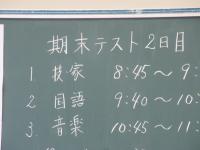 期末テスト2日目
1. 技家 8:45〜9:
2. 国語 9:40〜10:
3. 音楽 10:45〜11: